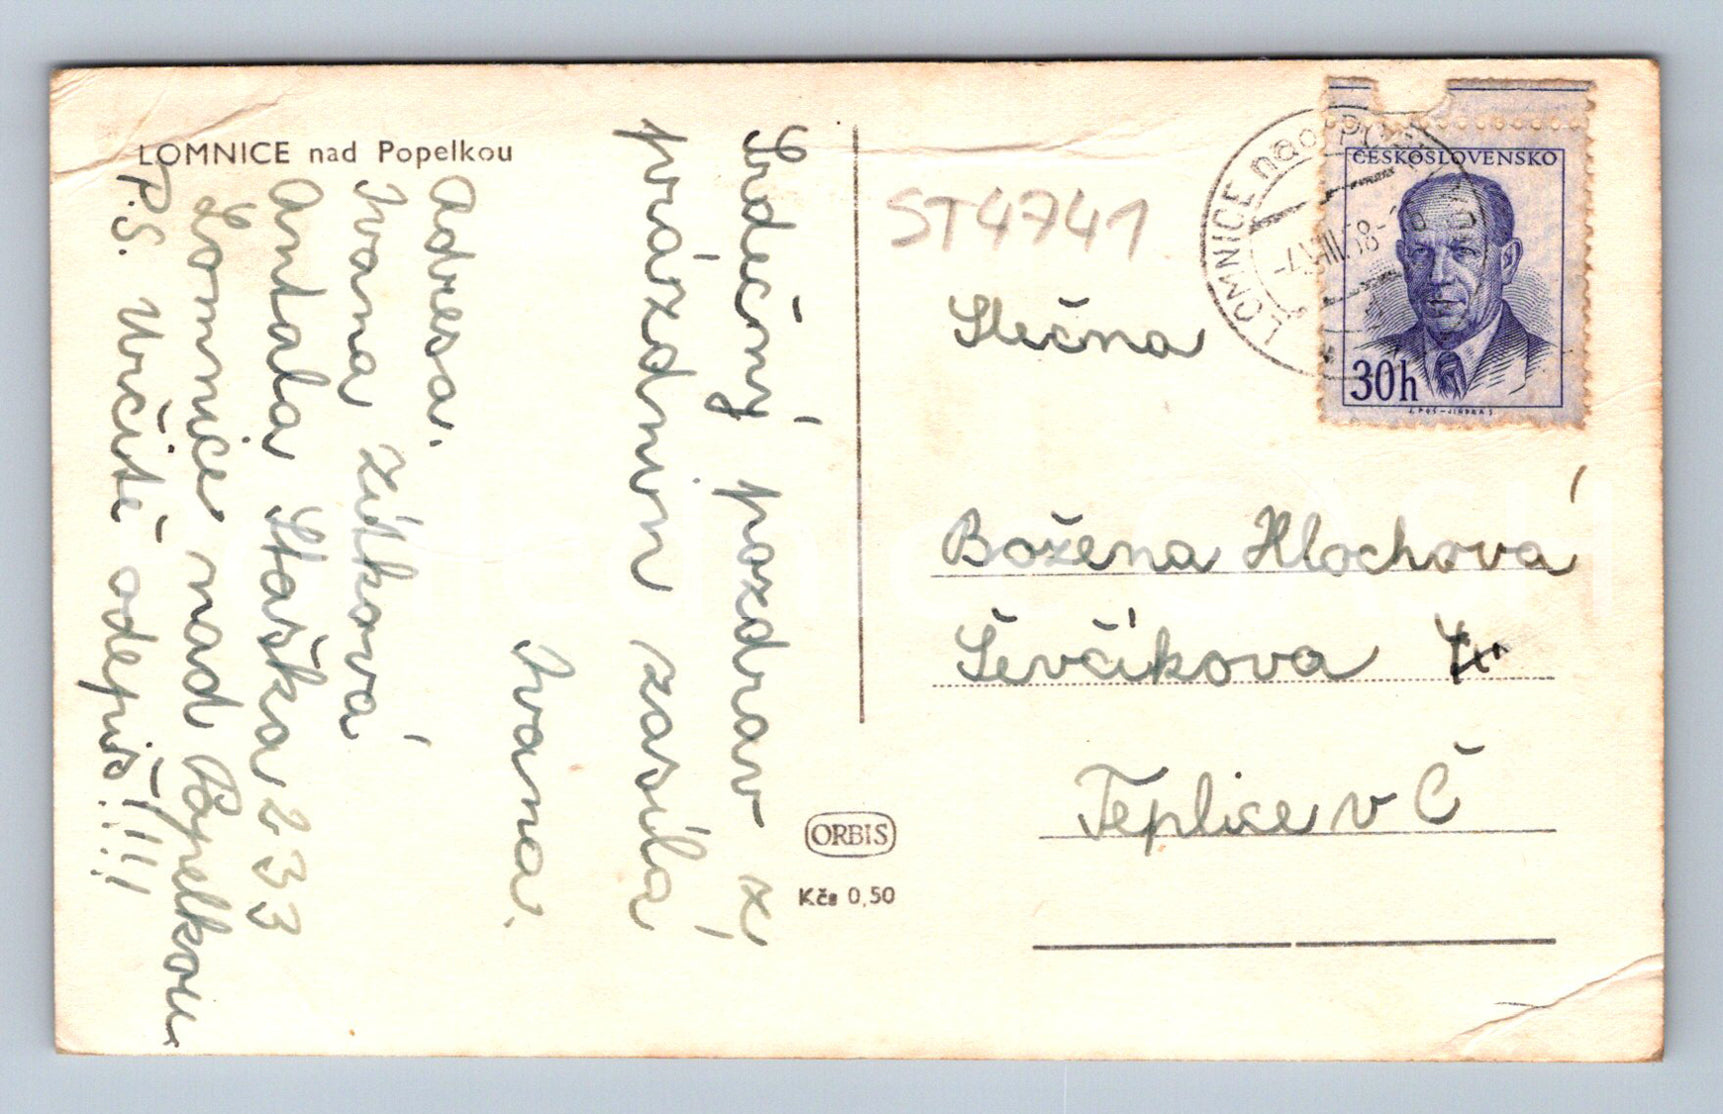 LOMNICE nad Popelkou
Srdečný pozdrav z
prázdnin zasílá
Ivana.
Adresa.
Ivana Zítková
Antala Staška 233
Lomnice nad Popelkou
P.S. Určitě odepiš!!!!
ST4741
LOMNICE nad POP
-4.VIII.58-18
ČESKOSLOVENSKO
30h
J. POŠ-JINDRA Š
Slečna
Božena Hlochová
Ševčíkova
Teplice v Č
ORBIS
Kčs 0,50